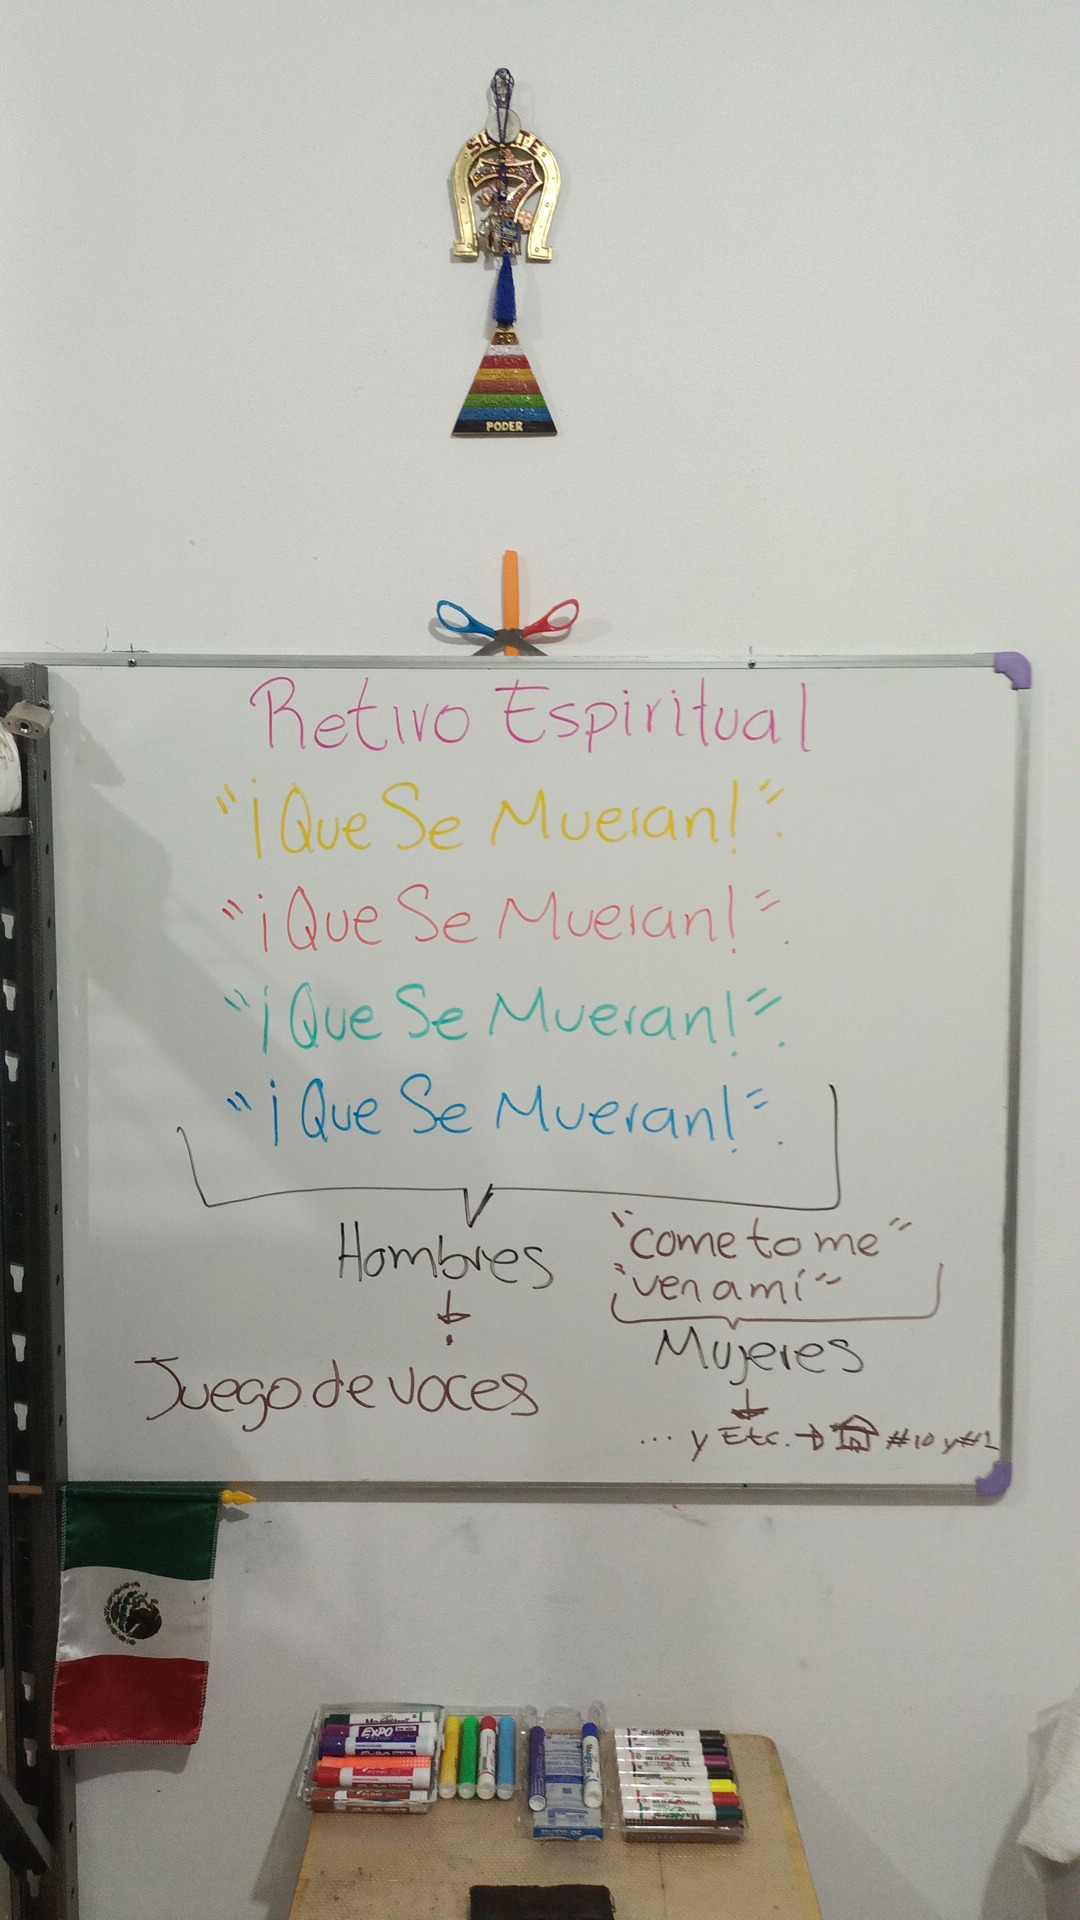 SUERTE
PODER
Retiro Espiritual
"¡Que Se Mueran!".
"¡Que Se Mueran!".
"¡Que Se Mueran!".
"¡Que Se Mueran!".
Hombres
"come to me"
"ven a mí"
Mujeres
Juego de voces
... y Etc. → #10 y #1
EXPO